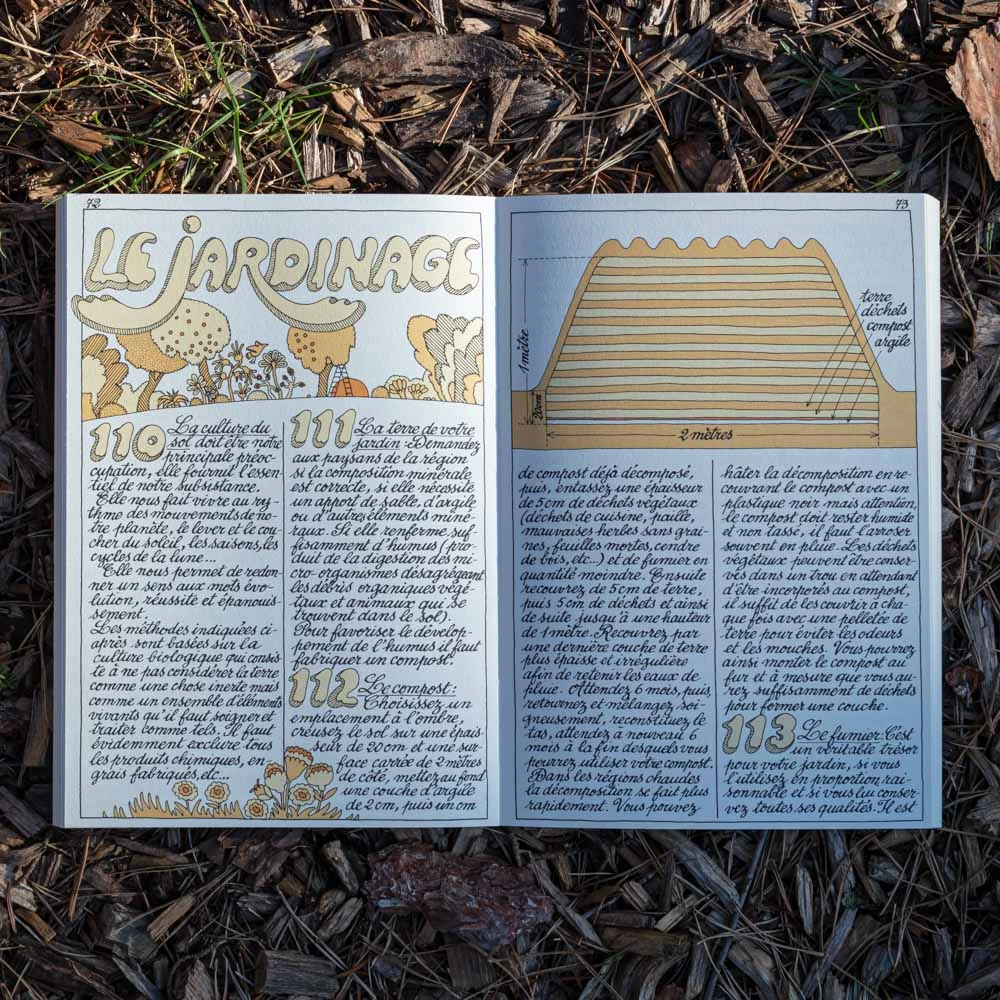 72
LE JARDINAGE
110 La culture du
sol doit être notre
principale préoc-
cupation, elle fournit l'essen-
tiel de notre subsistance.
Elle nous fait vivre au ry-
thme des mouvements de no-
tre planète, le lever et le cou-
cher du soleil, les saisons, les
cycles de la lune...
Elle nous permet de redon-
ner un sens aux mots évo-
lution, réussite et épanouis-
sement.
Les méthodes indiquées ci-
après sont basées sur la
culture biologique qui consis-
te à ne pas considérer la terre
comme une chose inerte mais
comme un ensemble d'éléments
vivants qu'il faut soigner et
traiter comme tels. Il faut
évidemment exclure tous
les produits chimiques, en-
grais fabriqués, etc...
111 La terre de votre
jardin : Demandez
aux paysans de la région
si la composition minérale
est correcte, si elle nécessite
un apport de sable, d'argile
ou d'autres éléments miné-
raux. Si elle renferme suf-
fisamment d'humus (pro-
duit de la digestion des mi-
cro-organismes désagrégeant
les débris organiques végé-
taux et animaux qui se
trouvent dans le sol).
Pour favoriser le dévelop-
pement de l'humus il faut
fabriquer un compost.
112 Le compost :
Choisissez un
emplacement à l'ombre,
creusez le sol sur une épais-
seur de 20 cm et une sur-
face carrée de 2 mètres
de côté, mettez au fond
une couche d'argile
de 2 cm, puis un cm
73
terre
déchets
compost
argile
1 mètre
20cm
2 mètres
de compost déjà décomposé,
puis, entassez une épaisseur
de 5 cm de déchets végétaux
(déchets de cuisine, paille,
mauvaises herbes sans grai-
nes, feuilles mortes, cendre
de bois, etc...) et de fumier en
quantité moindre. Ensuite
recouvrez de 5 cm de terre,
puis 5 cm de déchets et ainsi
de suite jusqu'à une hauteur
de 1 mètre. Recouvrez par
une dernière couche de terre
plus épaisse et irrégulière
afin de retenir les eaux de
pluie. Attendez 6 mois, puis,
retournez et mélangez soi-
gneusement, reconstituez le
tas, attendez à nouveau 6
mois à la fin desquels vous
pourrez utiliser votre compost.
Dans les régions chaudes
la décomposition se fait plus
rapidement. Vous pouvez
hâter la décomposition en re-
couvrant le compost avec un
plastique noir mais attention,
le compost doit rester humide
et non tassé, il faut l'arroser
souvent en pluie. Les déchets
végétaux peuvent être conser-
vés dans un trou en attendant
d'être incorporés au compost,
il suffit de les couvrir à cha-
que fois avec une pelletée de
terre pour éviter les odeurs
et les mouches. Vous pourrez
ainsi monter le compost au
fur et à mesure que vous au-
rez suffisamment de déchets
pour former une couche.
113 Le fumier : C'est
un véritable trésor
pour votre jardin, si vous
l'utilisez en proportion rai-
sonnable et si vous lui conser-
vez toutes ses qualités. Il est